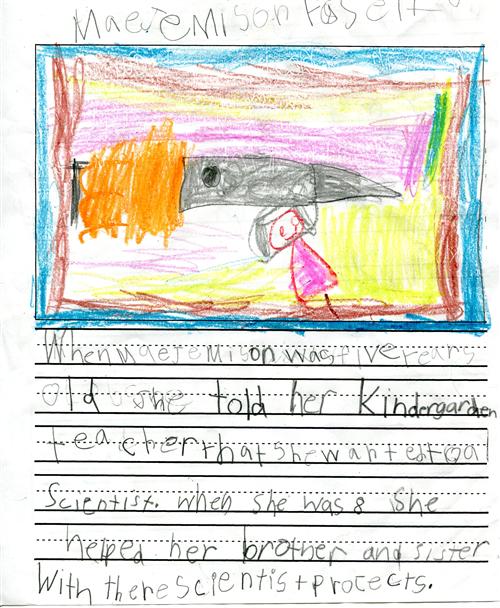 Mae Jemison
When mae Jemison was five years
old she told her Kindergarden
teacher that she wanted to a
Scientist. when she was 8 she
helped her brother and sister
With there scientist protects.